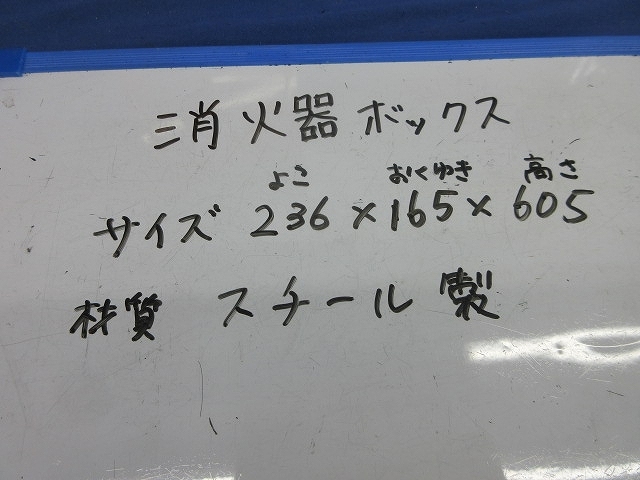 消火器ボックス
よこ おくゆき 高さ
サイズ 236×165×605
材質 スチール製